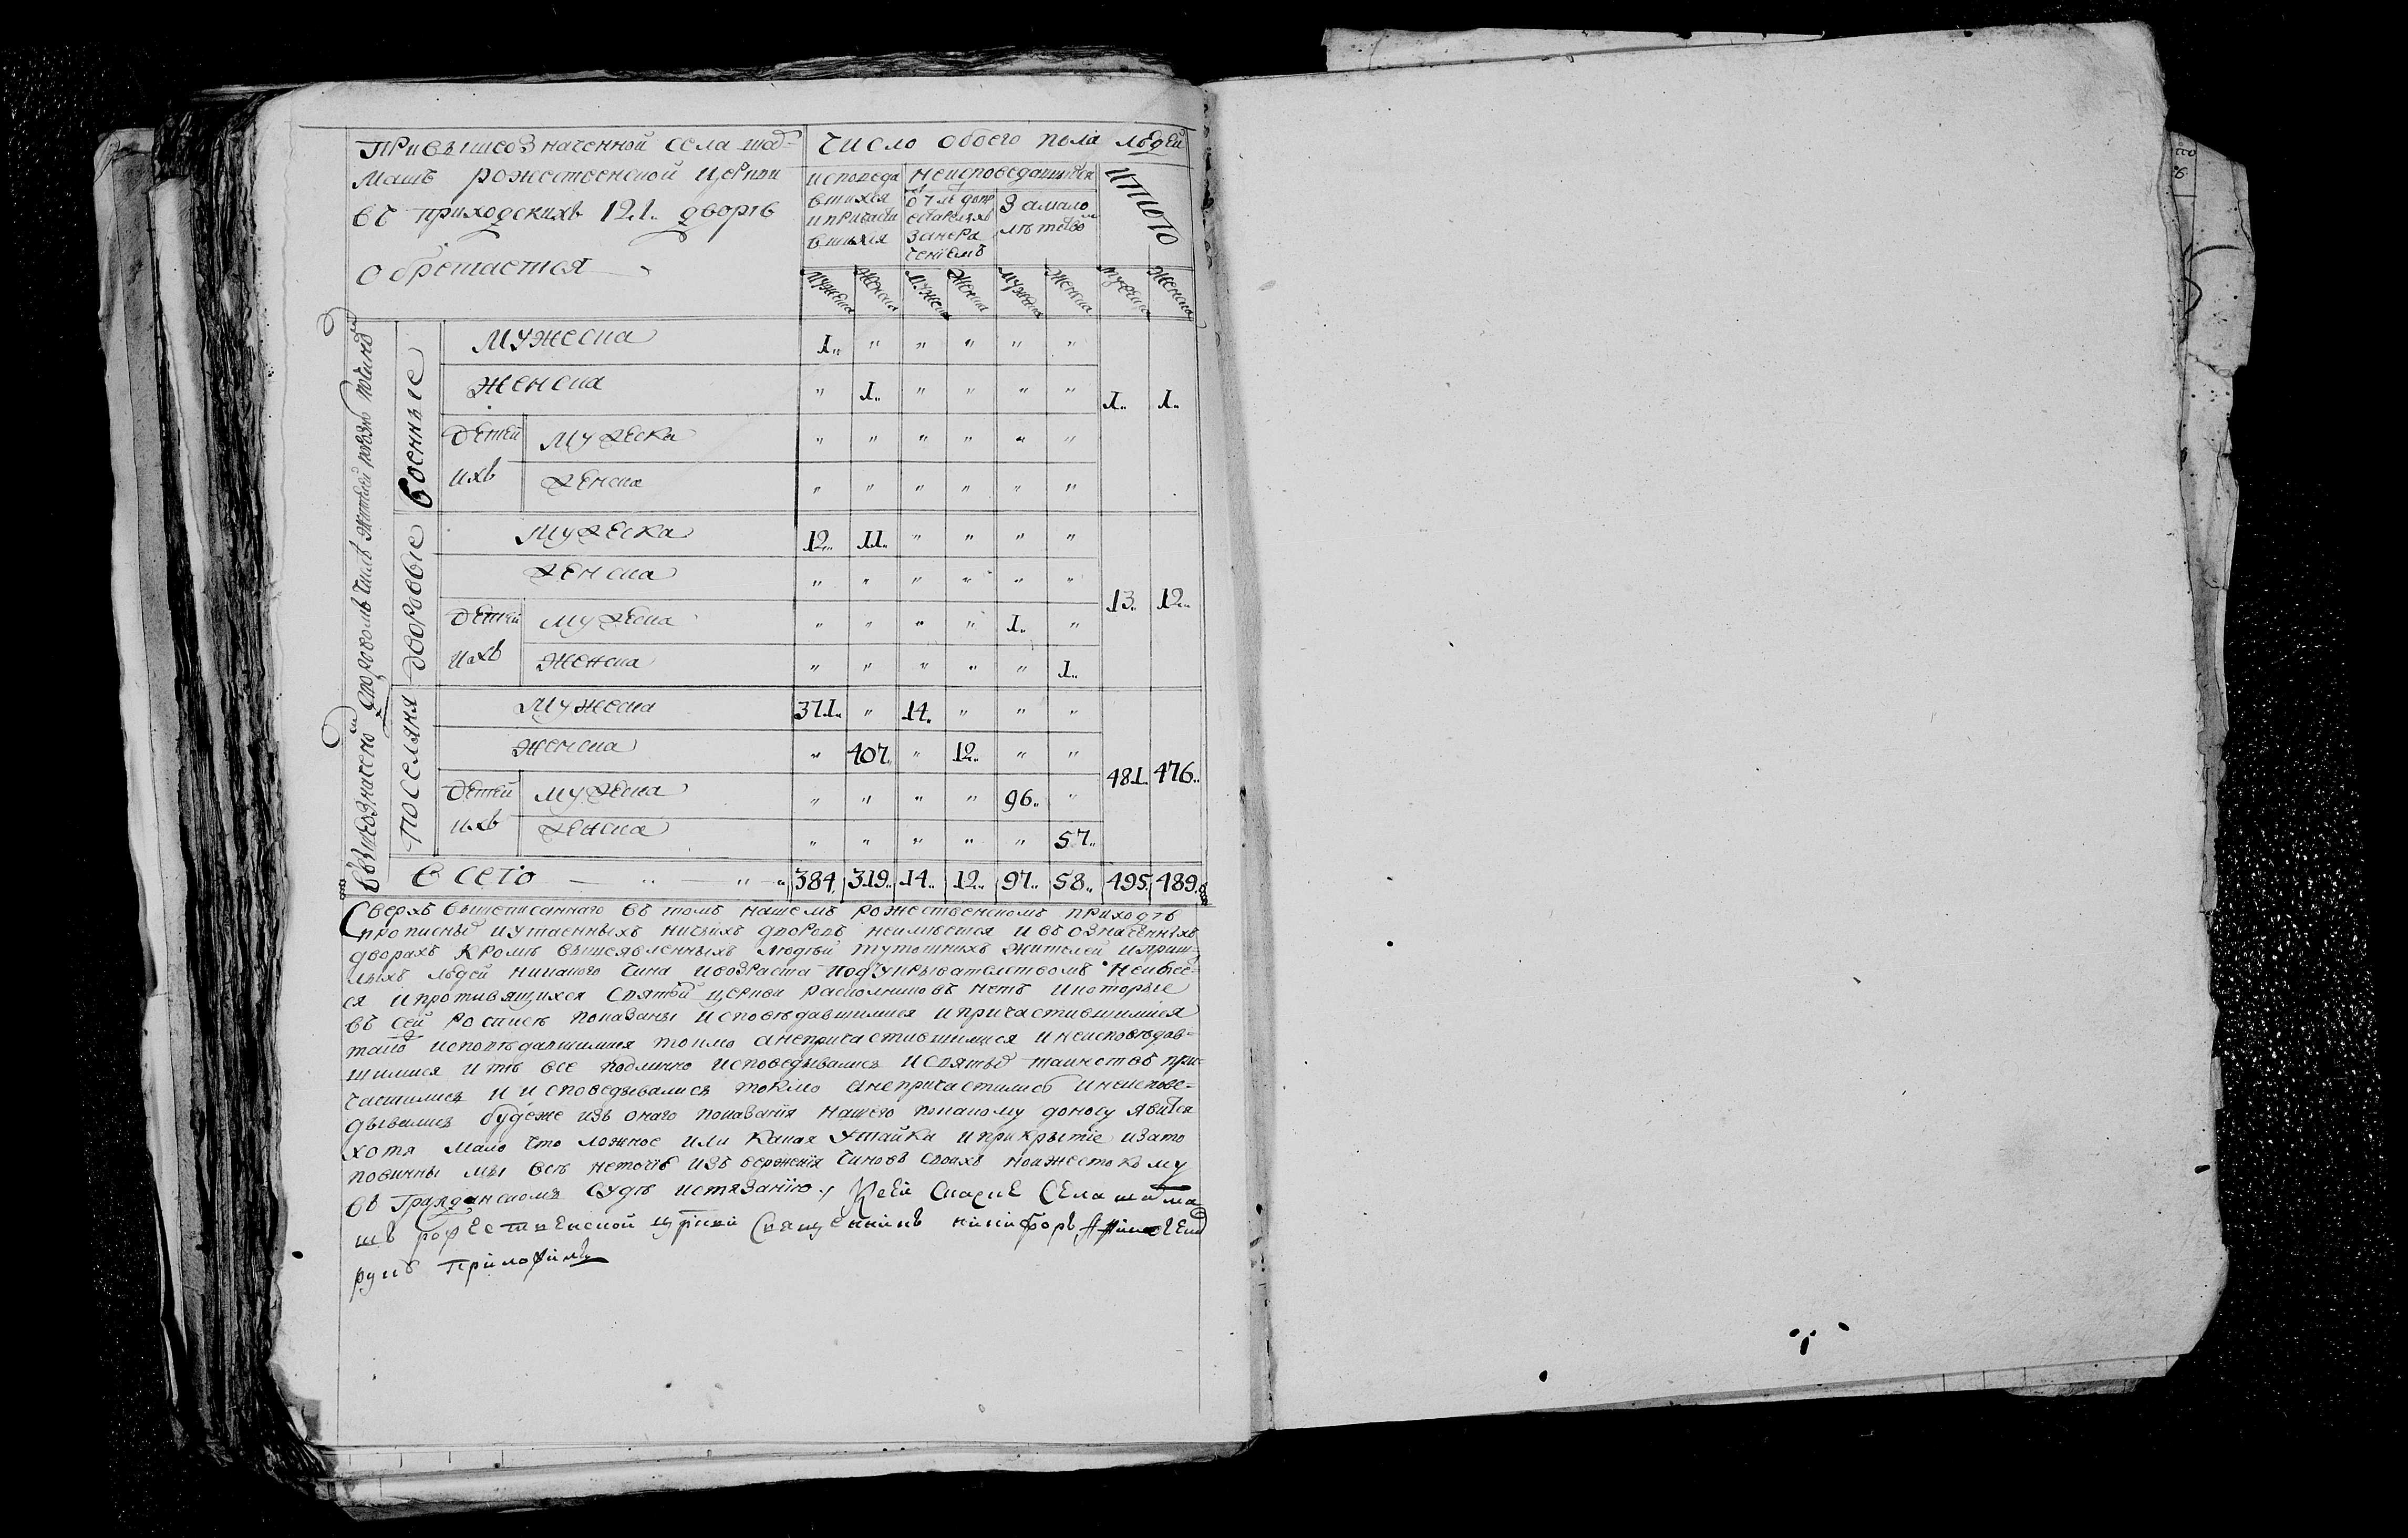 При вышеозначенной села шад=
машъ рожественской церкви
въ приходскихъ 121. дворѣ
обретается
Число обоего пола людей
исповеда
вшихся
и причасти
вшихся
неисповедавшихся
от 7 лѣ до пре
старелыхъ
за нера
чениемъ
За мало
лѣтство
итого
мужеска женска мужеска женска мужеска женска мужеска женска
Военные
мужеска 1. " " " " "
женска " 1. " " " " 1. 1.
детей мужеска " " " " " "
ихъ женска " " " " " "
дворовые
мужеска 12. 11. " " " "
женска " " " " " " 13. 12.
детей мужеска " " " " 1. "
ихъ женска " " " " " 1.
поселяня
мужеска 371. " 14. " " "
женска " 407. " 12. " " 481. 476.
детей мужеска " " " " 96. "
ихъ женска " " " " " 57.
всего 384. 319. 14. 12. 97. 58. 495. 489.
Сверхъ вышеписаннаго въ томъ нашемъ рожественскомъ приходѣ
прописныхъ и утаенныхъ ничьихъ дворовъ неимѣется и въ означенныхъ
дворахъ кромѣ вышеявленныхъ людѣй тутошнихъ жителей и приш=
лыхъ людей никакого чина и возраста подъ укрывателствомъ неимѣе=
ся и противящихся святѣй церкви раскольниковъ нетъ и которые
въ сей росписѣ показаны исповѣдавшимися и причастившимися
такъ исповѣдавшимися токмо а непричастившимися и неисповѣдав=
шимися и тѣ все подлинно исповедывались и святыхъ таинствъ при=
частились и исповедывались токмо а непричастились и неиспове=
дывались будеже изъ онаго показания нашего по какому доносу явится
хотя мало что ложное или какая утайка и прикрытие и за то
повинны мы всѣ неточiю извержения чиновъ своихъ но и жестокому
въ гражданскомъ судѣ истязанию. К сей сказке села шадма
шъ рожественской цркви священникъ никифоръ
руку приложилъ